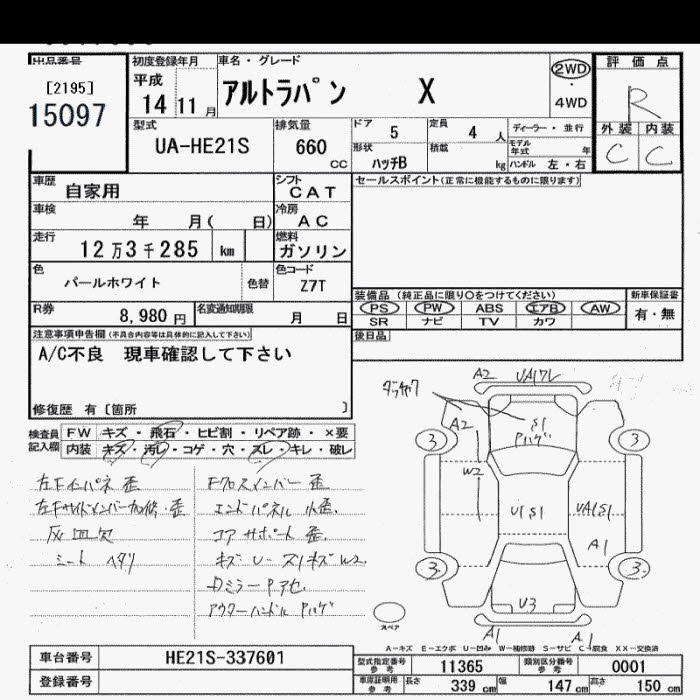 出品番号
[2195]
15097
初度登録年月
平成
14 11 月
車名・グレード
アルトラパン X
2WD
・
4WD
評価点
R
外装 内装
C C
型式
UA-HE21S
排気量
660 cc
ドア 5
定員 4 人
ディーラー・並行
形状
ハッチB
積載 kg
モデル年式 年
ハンドル 左・右
車歴
自家用
シフト
CAT
セールスポイント(正常に機能するものに限ります)
車検
年 月( 日)
冷房
AC
走行
12万3千285 km
燃料
ガソリン
色
パールホワイト
色替
色コード
Z7T
装備品 (純正品に限り○をつけてください)
新車保証書
PS PW ABS エアB AW
有・無
SR ナビ TV カワ
R券
8,980 円
名変通知期限
月 日
後日品
注意事項申告欄(不具合内容等は具体的に記入して下さい)
A/C不良 現車確認して下さい
修復歴 有〔箇所 〕
検査員記入欄
FW キズ・飛石・ヒビ割・リペア跡・×要
内装 キズ・汚レ・コゲ・穴・スレ・キレ・破レ
左Fインパネ 歪
左Fサイドメンバー加修・歪
灰皿欠
シートヘタリ
Fクロスメンバー 歪
エンドパネル 小歪.
コアサポート 歪.
キズ U- スリキズ W2.
アウターハンドル Pハゲ
A2
A2
S1
Pハゲ
3 3
W2
U1S1
UA1S1
A1
3 3
U3
A1 A1
スペア
A-キズ E-エクボ U-凹み W-補修跡 S-サビ C-腐食 XX-交換済
車台番号
HE21S-337601
登録番号
型式指定番号
参考
11365
類別区分番号
参考
0001
車庫証明用
参考
長さ 339 cm
幅 147 cm
高さ 150 cm